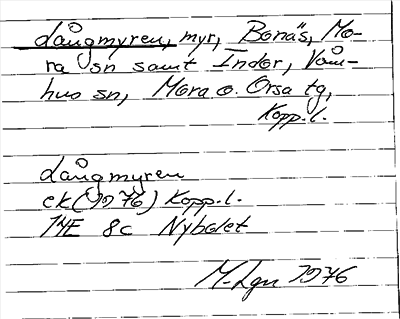 Långmyren, myr, Bonäs, Mo-
ra sn samt Indor, Våm-
hus sn, Mora o. Orsa tg,
Kopp.l.
Långmyren
ek (1976) Kopp.l.
14E 8c Nybolet
M-Lgn 1976